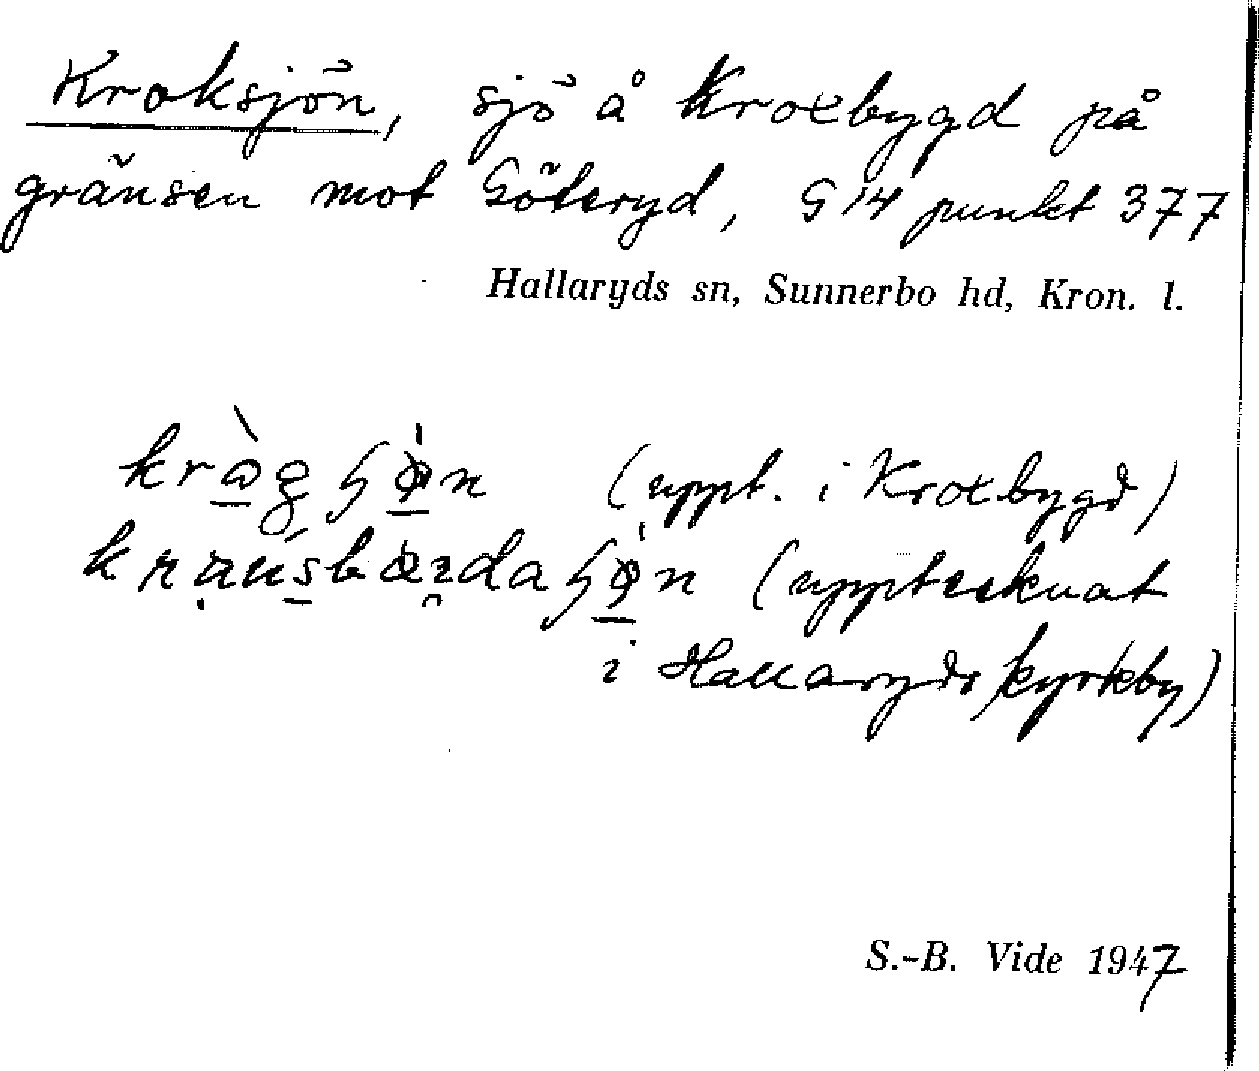 Kroksjön, sjö å Kroxbygd på
gränsen mot Göteryd, G 14 punkt 377
Hallaryds sn, Sunnerbo hd, Kron. l.
(uppt. i Kroxbygd)
(upptecknat
i Hallaryds kyrkby)
S.-B. Vide 1947